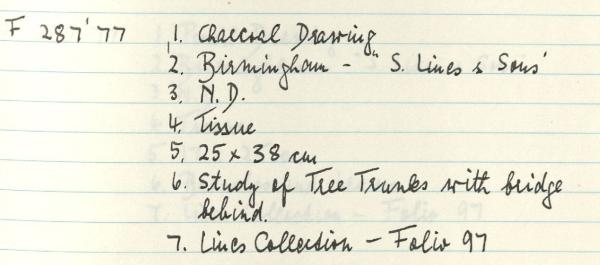 F 287'77 1. Charcoal Drawing
2. Birmingham - "S. Lines & Sons"
3. N.D.
4. Tissue
5. 25 x 38 cm
6. Study of Tree Trunks with bridge
behind.
7. Lines Collection - Folio 97